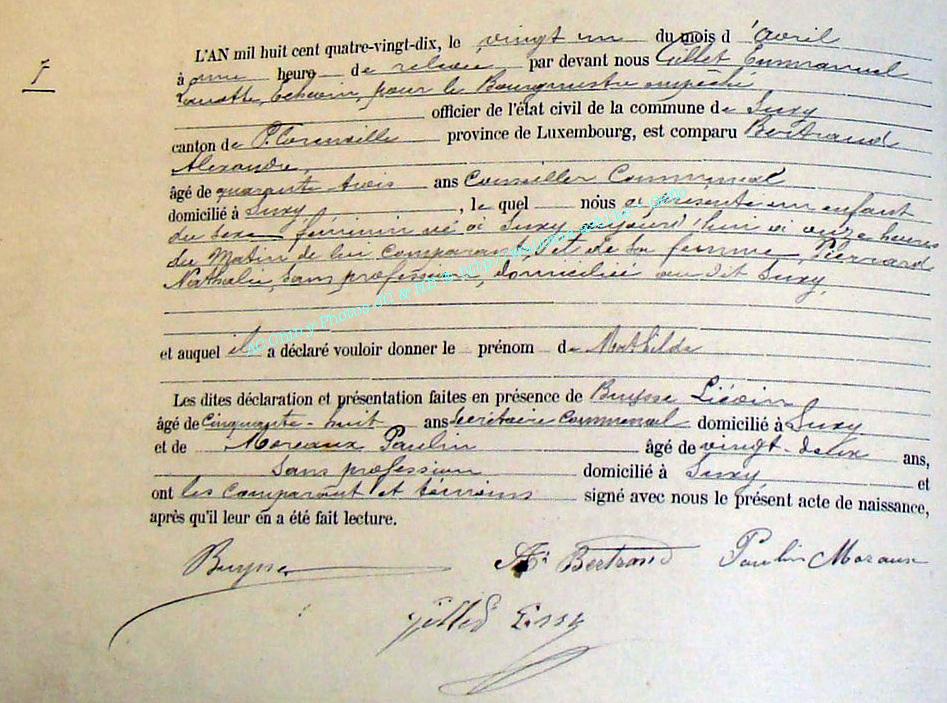 7
L'AN mil huit cent quatre-vingt-dix, le vingt un du mois d'avril
à une heure de relevée par devant nous Gillet Emmanuel
Echevin, pour le Bourgmestre empêché
officier de l'état civil de la commune de Suxy
canton de province de Luxembourg, est comparu Bertrand
Alexandre,
âgé de quarante trois ans Conseiller Communal
domicilié à Suxy, le quel nous a présenté un enfant
du sexe féminin né à Suxy aujourd'hui à onze heures
du Matin de lui comparant et de sa femme, Pierrard
Nathalie, sans profession, domiciliée au dit Suxy,
et auquel il a déclaré vouloir donner le prénom de Mathilde
Les dites déclaration et présentation faites en présence de Buysse Liévin
âgé de Cinquante-huit ans Secrétaire Communal domicilié à Suxy
et de Moreaux Paulin âgé de vingt-deux ans,
Sans profession domicilié à Suxy et
ont les comparant et témoins signé avec nous le présent acte de naissance,
après qu'il leur en a été fait lecture.
Buysse Ax Bertrand Paulin Moraux
Gillet